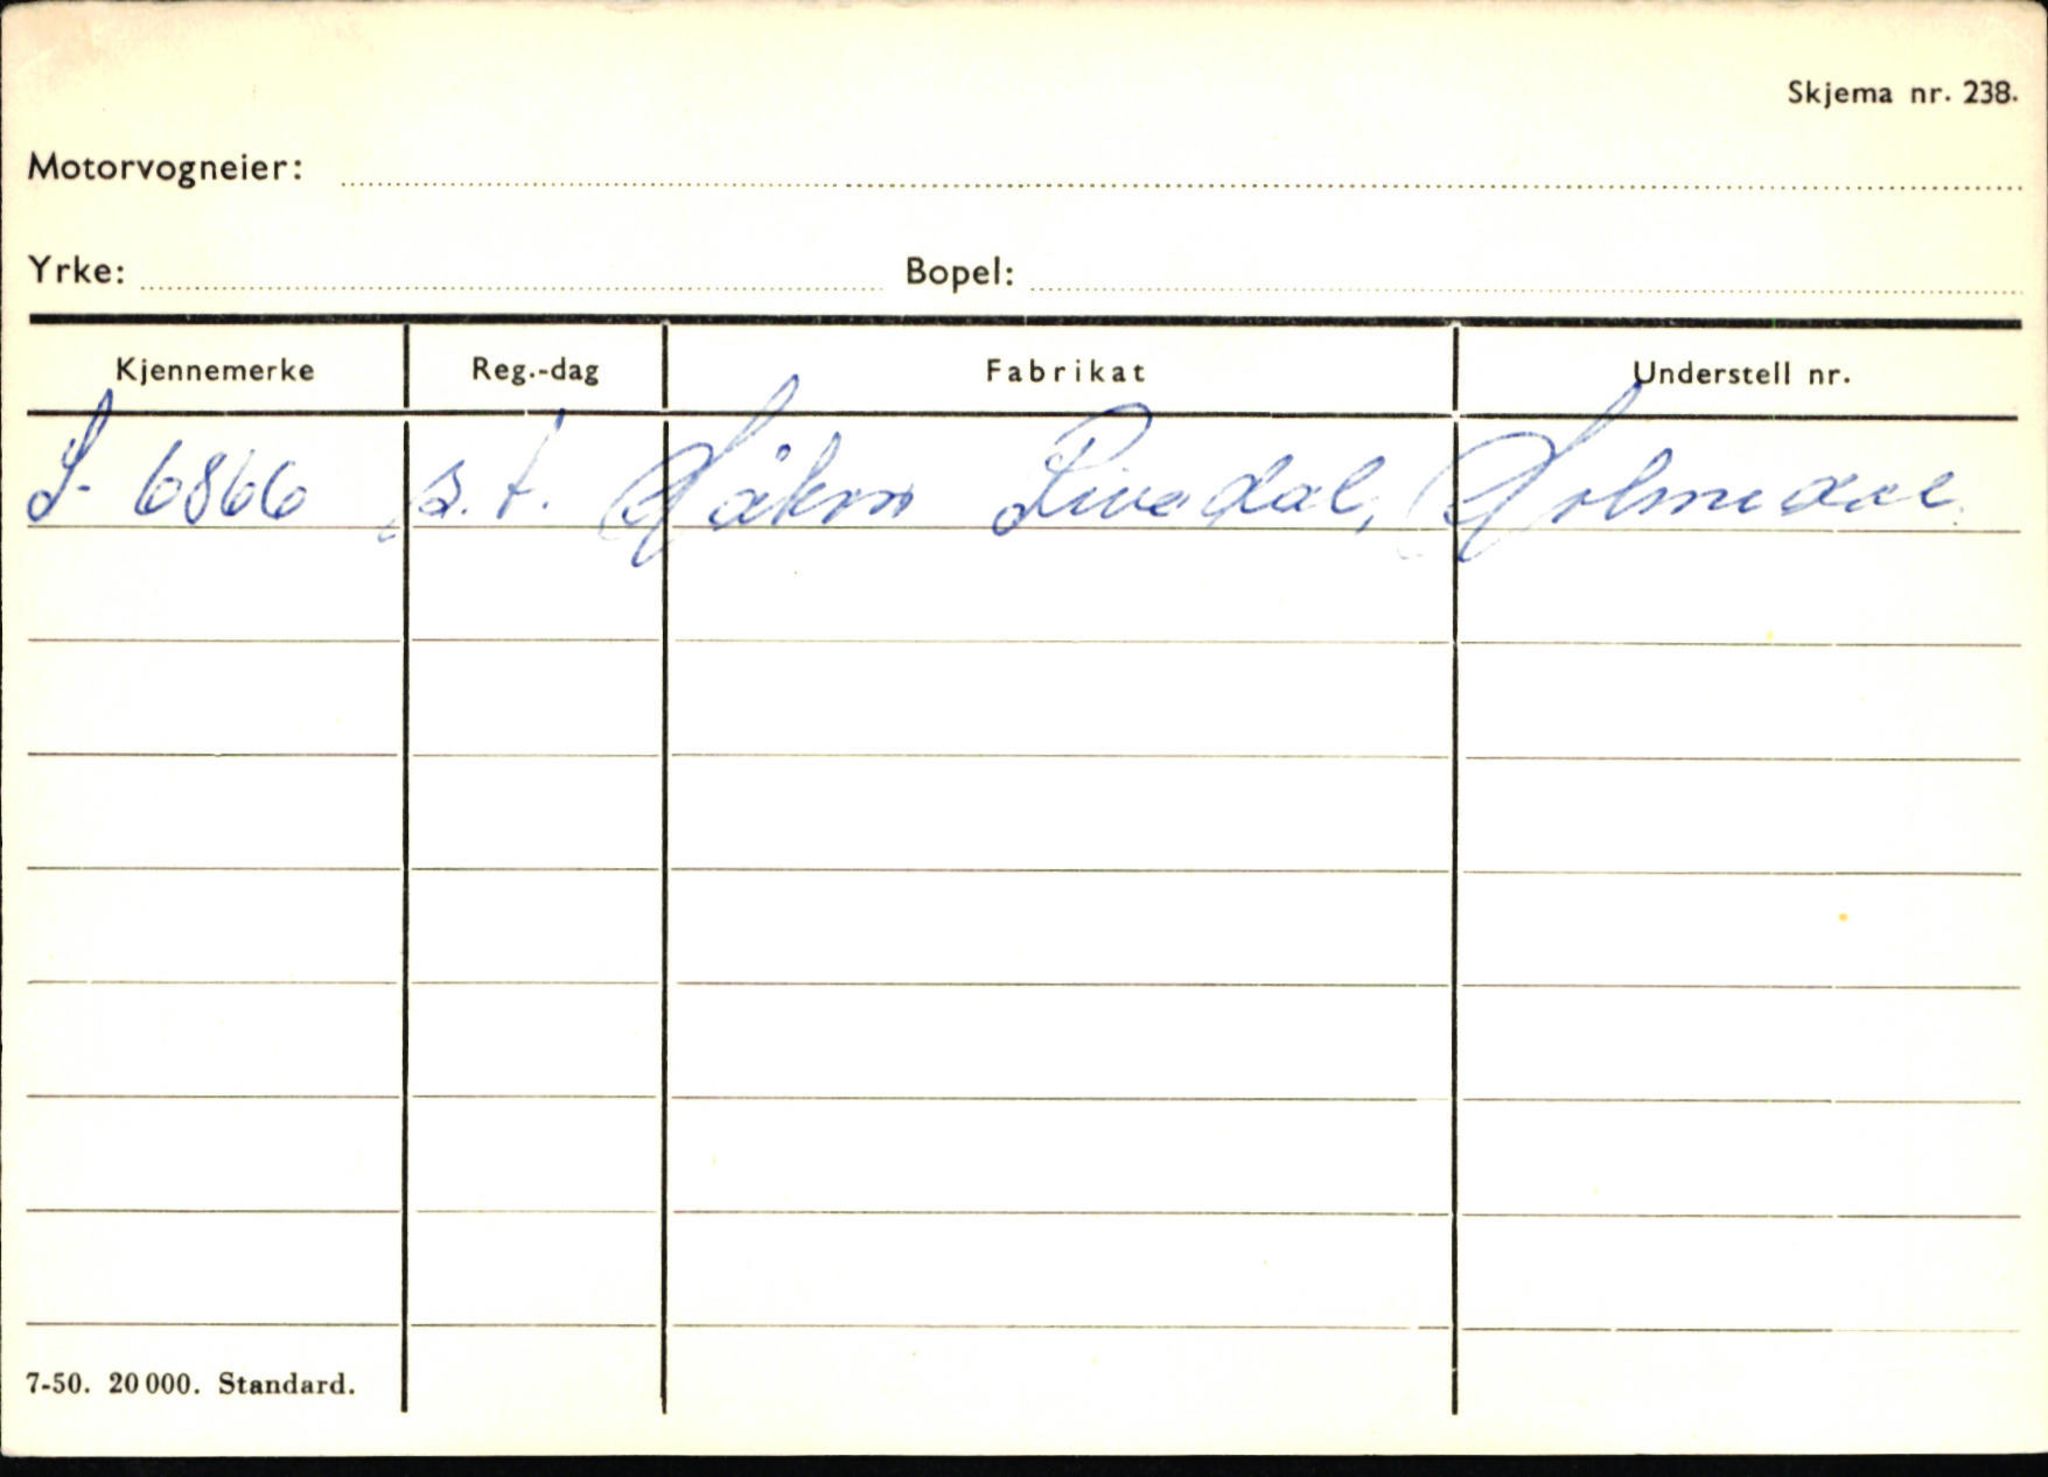 Skjema nr. 238.
Motorvogneier:
Yrke: Bopel:
Kjennemerke Reg.-dag Fabrikat Understell nr.
S- 6866 s.t. Håkon Livedal, Holmedal.
7-50. 20 000. Standard.